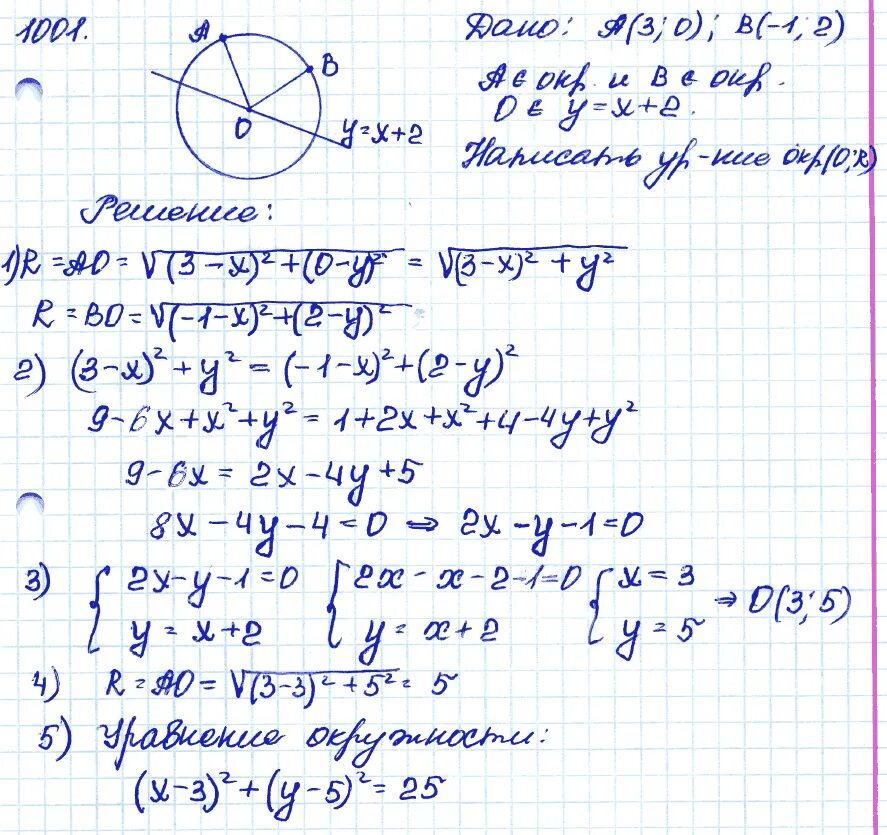 1001.
A
B
O
y=x+2
Дано: A(3; 0); B(-1; 2)
A ∈ окр. и B ∈ окр.
O ∈ y=x+2.
Написать ур-ние окр(O; R)
Решение:
1) R = AO = √((3-x)²+(0-y)²) = √((3-x)²+y²)
R = BO = √((-1-x)²+(2-y)²)
2) (3-x)²+y² = (-1-x)²+(2-y)²
9-6x+x²+y² = 1+2x+x²+4-4y+y²
9-6x = 2x-4y+5
8x-4y-4=0 ⇒ 2x-y-1=0
3) { 2x-y-1=0 { 2x-x-2-1=0 { x=3 ⇒ O(3; 5)
y=x+2 y=x+2 y=5
4) R = AO = √((3-3)²+5²) = 5
5) Уравнение окружности:
(x-3)²+(y-5)²=25